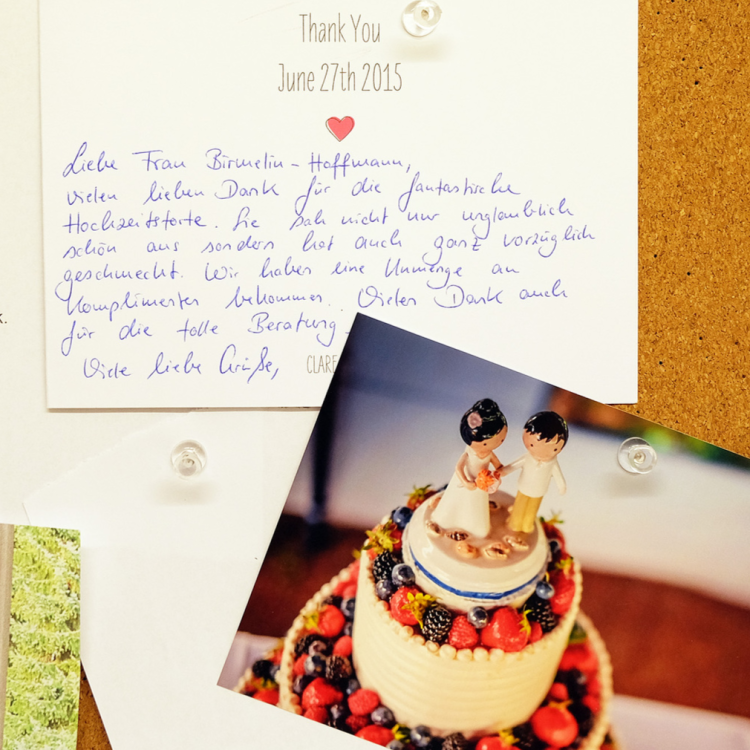 Thank You
June 27th 2015
Liebe Frau Birmelin-Hoffmann,
vielen lieben Dank für die fantastische
Hochzeitstorte. Sie sah nicht nur unglaublich
schön aus sondern hat auch ganz vorzüglich
geschmeckt. Wir haben eine Unmenge an
Komplimenten bekommen. Vielen Dank auch
für die tolle Beratung.
Viele liebe Grüße,
CLARE